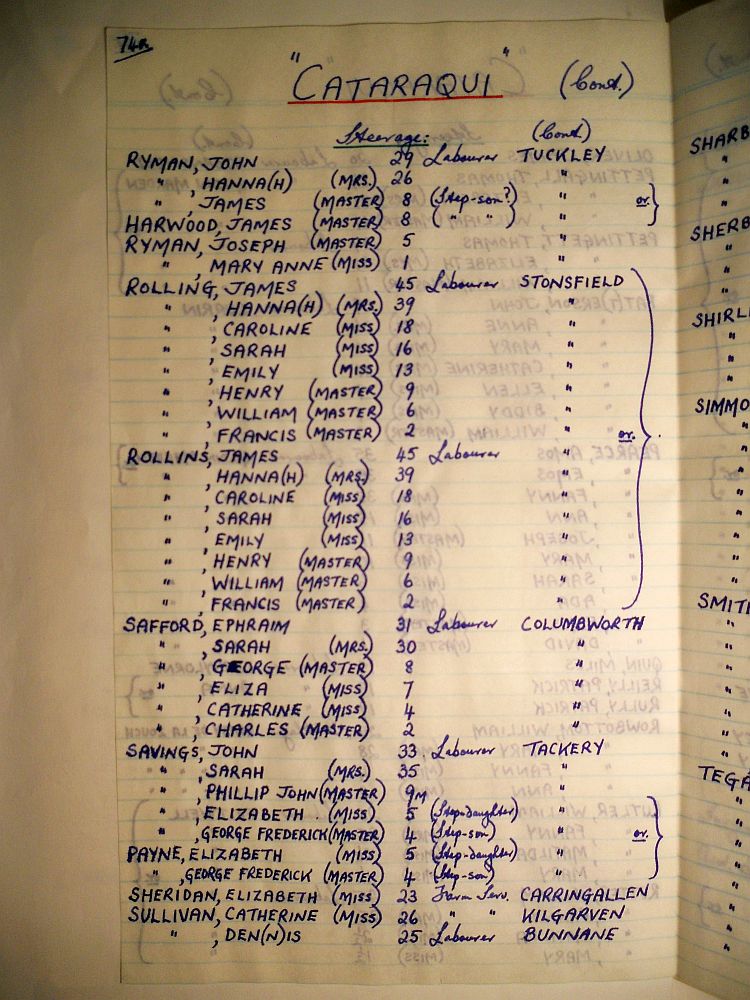 74a
"CATARAQUI" (Cont.)
Steerage: (Cont)
RYMAN, JOHN 29 Labourer TUCKLEY
" , HANNA(H) (MRS.) 26 "
" , JAMES (MASTER) 8 (Step-son?) " or
HARWOOD, JAMES (MASTER) 8 ( " " ) "
RYMAN, JOSEPH (MASTER) 5 "
" , MARY ANNE (MISS) 1 "
ROLLING, JAMES 45 Labourer STONSFIELD
" , HANNA(H) (MRS.) 39 "
" , CAROLINE (MISS) 18 "
" , SARAH (MISS) 16 "
" , EMILY (MISS) 13 "
" , HENRY (MASTER) 9 "
" , WILLIAM (MASTER) 6 "
" , FRANCIS (MASTER) 2 " or
ROLLINS, JAMES 45 Labourer "
" , HANNA(H) (MRS.) 39 "
" , CAROLINE (MISS) 18 "
" , SARAH (MISS) 16 "
" , EMILY (MISS) 13 "
" , HENRY (MASTER) 9 "
" , WILLIAM (MASTER) 6 "
" , FRANCIS (MASTER) 2 "
SAFFORD, EPHRAIM 31 Labourer COLUMBWORTH
" , SARAH (MRS.) 30 "
" , GEORGE (MASTER) 8 "
" , ELIZA (MISS) 7 "
" , CATHERINE (MISS) 4 "
" , CHARLES (MASTER) 2 "
SAVINGS, JOHN 33 Labourer TACKERY
" , SARAH (MRS.) 35 "
" , PHILLIP JOHN (MASTER) 9M "
" , ELIZABETH . (MISS) 5 (Step-daughter) "
" , GEORGE FREDERICK (MASTER) 4 (Step-son) " or
PAYNE, ELIZABETH (MISS) 5 (Step-daughter) "
" , GEORGE FREDERICK (MASTER) 4 (Step-son) "
SHERIDAN, ELIZABETH (MISS) 23 Farm Serv. CARRINGALLEN
SULLIVAN, CATHERINE (MISS) 26 " " KILGARVEN
" , DEN(N)IS 25 Labourer BUNNANE
SHARB
"
"
"
SHERB
"
"
"
SHIRL
"
"
"
SIMMO
"
"
"
"
"
"
"
"
SMITH
"
"
"
"
"
"
"
TEGA
"
"
"
"
"
"
"